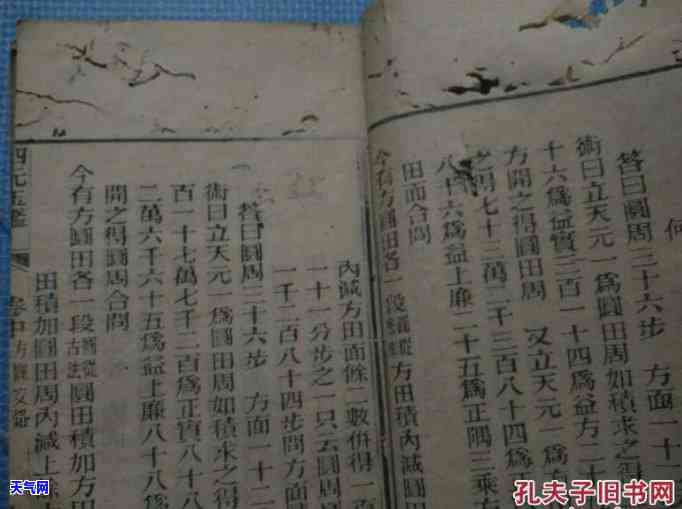 何
答曰圓周三十六步 方面一十一
術曰立天元一爲圓田周如積求之得
十六爲益實三百一十四爲益方二十
方開之得圓田周 又立天元一爲方
之得七十三萬二千三百八十四爲
八百六爲益上廉二十五爲正隅三乘方
田面合問
今有方圓田各一段 方田積內減圓
內減方田面餘二數併得一百
一十一分步之一只云圓周
一千二百八十四步問方面
答曰圓周三十六步 方面一十二
術曰立天元一爲圓田周如積求之得
百一十七萬七千二百爲正實八十八
二萬六千六十五爲益上廉八十八
開之得圓周合問
今有方圓田各一段舊從古法圓田積加方田
田積加圓田周內減上餘
四元玉鑑 卷中 方圓交錯
天气网
孔夫子旧书网